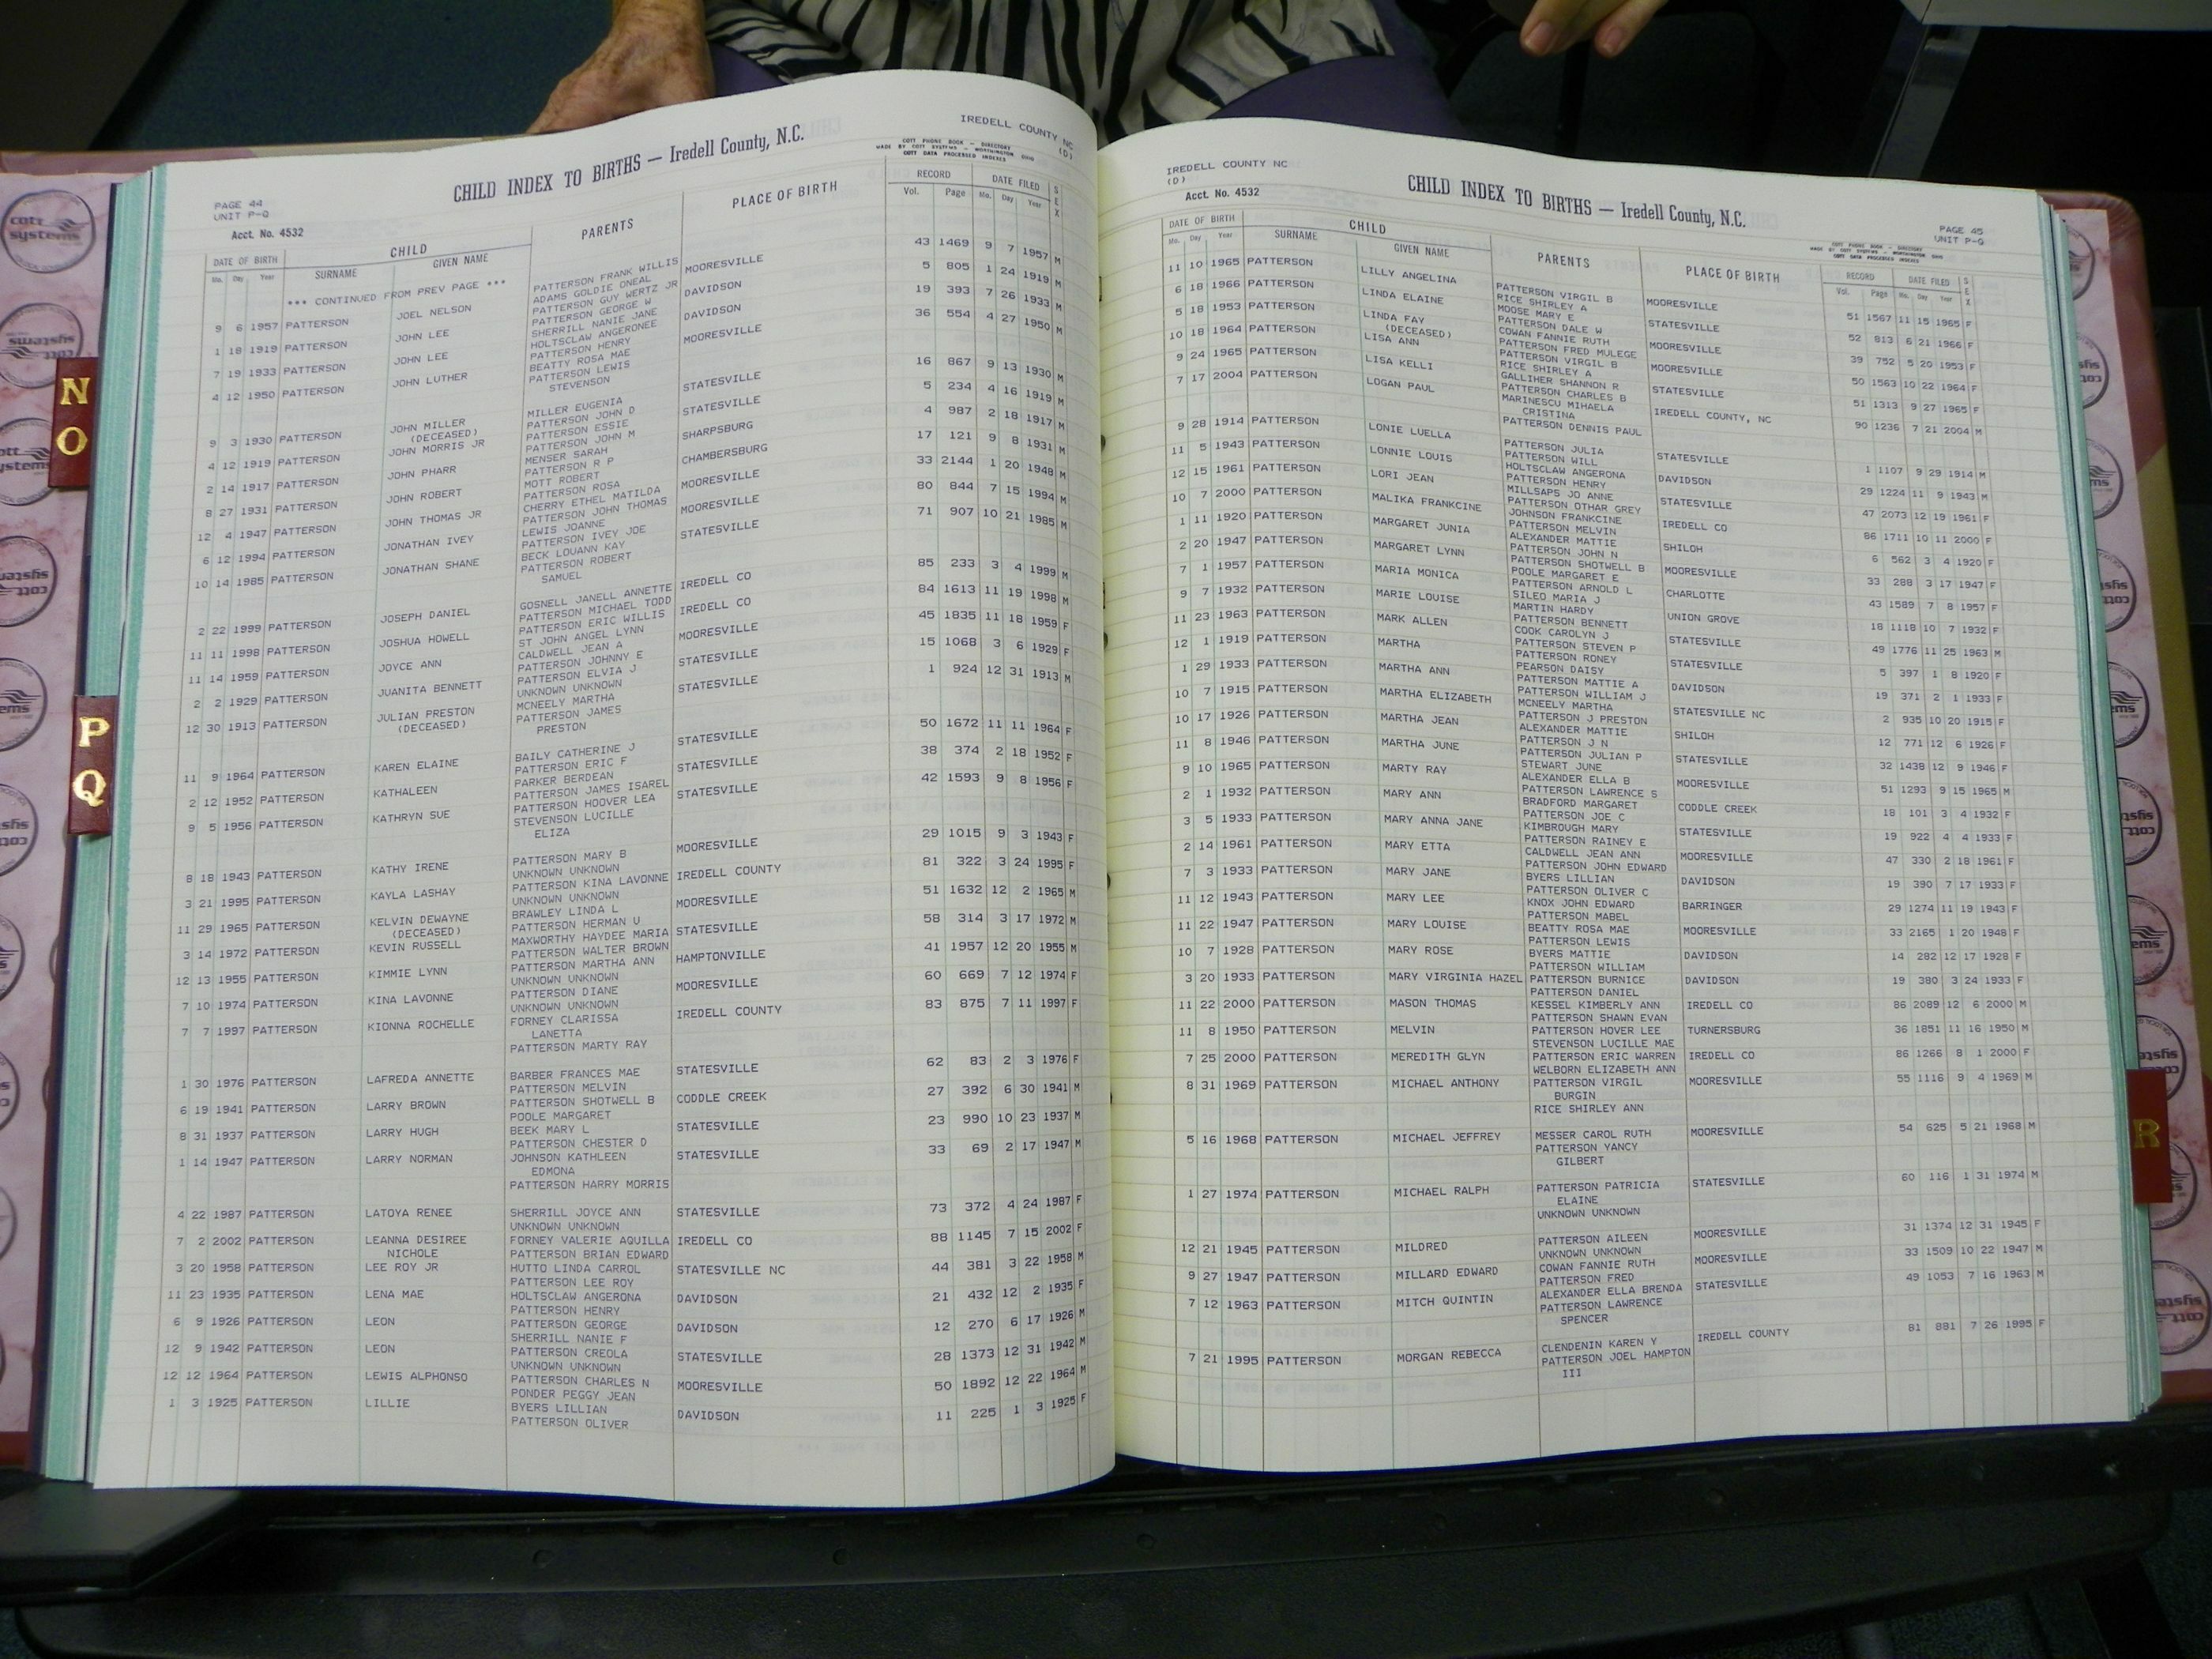 PAGE 44
UNIT P-Q
Acct. No. 4532
CHILD INDEX TO BIRTHS — Iredell County, N.C.
IREDELL COUNTY NC
(D)
COTT PHONE BOOK - DIRECTORY
MADE BY COTT SYSTEMS - WORTHINGTON OHIO
COTT DATA PROCESSED INDEXES
DATE OF BIRTH CHILD PARENTS PLACE OF BIRTH RECORD DATE FILED SEX
Mo. Day Year SURNAME GIVEN NAME Vol. Page Mo. Day Year
*** CONTINUED FROM PREV PAGE ***
9 6 1957 PATTERSON JOEL NELSON PATTERSON FRANK WILLIS MOORESVILLE 43 1469 9 7 1957 M
ADAMS GOLDIE ONEAL
1 18 1919 PATTERSON JOHN LEE PATTERSON GUY WERTZ JR DAVIDSON 5 805 1 24 1919 M
PATTERSON GEORGE W
7 19 1933 PATTERSON JOHN LEE SHERRILL NANIE JANE DAVIDSON 19 393 7 26 1933 M
HOLTSCLAW ANGERONEE
4 12 1950 PATTERSON JOHN LUTHER PATTERSON HENRY MOORESVILLE 36 554 4 27 1950 M
BEATTY ROSA MAE
PATTERSON LEWIS
STEVENSON
9 3 1930 PATTERSON JOHN MILLER MILLER EUGENIA STATESVILLE 16 867 9 13 1930 M
(DECEASED) PATTERSON JOHN D
4 12 1919 PATTERSON JOHN MORRIS JR PATTERSON ESSIE STATESVILLE 5 234 4 16 1919 M
PATTERSON JOHN M
2 14 1917 PATTERSON JOHN PHARR MENSER SARAH SHARPSBURG 4 987 2 18 1917 M
PATTERSON R P
8 27 1931 PATTERSON JOHN ROBERT MOTT ROBERT CHAMBERSBURG 17 121 9 8 1931 M
PATTERSON ROSA
12 4 1947 PATTERSON JOHN THOMAS JR CHERRY ETHEL MATILDA MOORESVILLE 33 2144 1 20 1948 M
PATTERSON JOHN THOMAS
6 12 1994 PATTERSON JONATHAN IVEY LEWIS JOANNE MOORESVILLE 80 844 7 15 1994 M
PATTERSON IVEY JOE
10 14 1985 PATTERSON JONATHAN SHANE BECK LOUANN KAY STATESVILLE 71 907 10 21 1985 M
PATTERSON ROBERT
SAMUEL
2 22 1999 PATTERSON JOSEPH DANIEL GOSNELL JANELL ANNETTE IREDELL CO 85 233 3 4 1999 M
PATTERSON MICHAEL TODD
11 11 1998 PATTERSON JOSHUA HOWELL PATTERSON ERIC WILLIS IREDELL CO 84 1613 11 19 1998 M
ST JOHN ANGEL LYNN
11 14 1959 PATTERSON JOYCE ANN CALDWELL JEAN A MOORESVILLE 45 1835 11 18 1959 F
PATTERSON JOHNNY E
2 2 1929 PATTERSON JUANITA BENNETT PATTERSON ELVIA J STATESVILLE 15 1068 3 6 1929 F
UNKNOWN UNKNOWN
12 30 1913 PATTERSON JULIAN PRESTON MCNEELY MARTHA STATESVILLE 1 924 12 31 1913 M
(DECEASED) PATTERSON JAMES
PRESTON
11 9 1964 PATTERSON KAREN ELAINE BAILY CATHERINE J STATESVILLE 50 1672 11 11 1964 F
PATTERSON ERIC F
2 12 1952 PATTERSON KATHALEEN PARKER BERDEAN STATESVILLE 38 374 2 18 1952 F
PATTERSON JAMES ISAREL
9 5 1956 PATTERSON KATHRYN SUE PATTERSON HOOVER LEA STATESVILLE 42 1593 9 8 1956 F
STEVENSON LUCILLE
ELIZA
8 18 1943 PATTERSON KATHY IRENE PATTERSON MARY B MOORESVILLE 29 1015 9 3 1943 F
UNKNOWN UNKNOWN
3 21 1995 PATTERSON KAYLA LASHAY PATTERSON KINA LAVONNE IREDELL COUNTY 81 322 3 24 1995 F
UNKNOWN UNKNOWN
11 29 1965 PATTERSON KELVIN DEWAYNE BRAWLEY LINDA L MOORESVILLE 51 1632 12 2 1965 M
(DECEASED) PATTERSON HERMAN U
3 14 1972 PATTERSON KEVIN RUSSELL MAXWORTHY HAYDEE MARIA STATESVILLE 58 314 3 17 1972 M
PATTERSON WALTER BROWN
12 13 1955 PATTERSON KIMMIE LYNN PATTERSON MARTHA ANN HAMPTONVILLE 41 1957 12 20 1955 M
UNKNOWN UNKNOWN
7 10 1974 PATTERSON KINA LAVONNE PATTERSON DIANE MOORESVILLE 60 669 7 12 1974 F
UNKNOWN UNKNOWN
7 7 1997 PATTERSON KIONNA ROCHELLE FORNEY CLARISSA IREDELL COUNTY 83 875 7 11 1997 F
LANETTA
PATTERSON MARTY RAY
1 30 1976 PATTERSON LAFREDA ANNETTE BARBER FRANCES MAE STATESVILLE 62 83 2 3 1976 F
PATTERSON MELVIN
6 19 1941 PATTERSON LARRY BROWN PATTERSON SHOTWELL B CODDLE CREEK 27 392 6 30 1941 M
POOLE MARGARET
8 31 1937 PATTERSON LARRY HUGH BEEK MARY L STATESVILLE 23 990 10 23 1937 M
PATTERSON CHESTER D
1 14 1947 PATTERSON LARRY NORMAN JOHNSON KATHLEEN STATESVILLE 33 69 2 17 1947 M
EDMONA
PATTERSON HARRY MORRIS
4 22 1987 PATTERSON LATOYA RENEE SHERRILL JOYCE ANN STATESVILLE 73 372 4 24 1987 F
UNKNOWN UNKNOWN
7 2 2002 PATTERSON LEANNA DESIREE FORNEY VALERIE AQUILLA IREDELL CO 88 1145 7 15 2002 F
NICHOLE PATTERSON BRIAN EDWARD
3 20 1958 PATTERSON LEE ROY JR HUTTO LINDA CARROL STATESVILLE NC 44 381 3 22 1958 M
PATTERSON LEE ROY
11 23 1935 PATTERSON LENA MAE HOLTSCLAW ANGERONA DAVIDSON 21 432 12 2 1935 F
PATTERSON HENRY
6 9 1926 PATTERSON LEON PATTERSON GEORGE DAVIDSON 12 270 6 17 1926 M
SHERRILL NANIE F
12 9 1942 PATTERSON LEON PATTERSON CREOLA STATESVILLE 28 1373 12 31 1942 M
UNKNOWN UNKNOWN
12 12 1964 PATTERSON LEWIS ALPHONSO PATTERSON CHARLES N MOORESVILLE 50 1892 12 22 1964 M
PONDER PEGGY JEAN
1 3 1925 PATTERSON LILLIE BYERS LILLIAN DAVIDSON 11 225 1 3 1925 F
PATTERSON OLIVER
IREDELL COUNTY NC
(D)
Acct. No. 4532
CHILD INDEX TO BIRTHS — Iredell County, N.C.
PAGE 45
UNIT P-Q
COTT PHONE BOOK - DIRECTORY
MADE BY COTT SYSTEMS - WORTHINGTON OHIO
COTT DATA PROCESSED INDEXES
DATE OF BIRTH CHILD PARENTS PLACE OF BIRTH RECORD DATE FILED SEX
Mo. Day Year SURNAME GIVEN NAME Vol. Page Mo. Day Year
11 10 1965 PATTERSON LILLY ANGELINA PATTERSON VIRGIL B MOORESVILLE 51 1567 11 15 1965 F
RICE SHIRLEY A
6 18 1966 PATTERSON LINDA ELAINE MOOSE MARY E STATESVILLE 52 813 6 21 1966 F
PATTERSON DALE W
5 18 1953 PATTERSON LINDA FAY COWAN FANNIE RUTH MOORESVILLE 39 752 5 20 1953 F
(DECEASED) PATTERSON FRED MULEGE
10 18 1964 PATTERSON LISA ANN PATTERSON VIRGIL B MOORESVILLE 50 1563 10 22 1964 F
RICE SHIRLEY A
9 24 1965 PATTERSON LISA KELLI GALLIHER SHANNON R STATESVILLE 51 1313 9 27 1965 F
PATTERSON CHARLES B
7 17 2004 PATTERSON LOGAN PAUL MARINESCU MIHAELA IREDELL COUNTY, NC 90 1236 7 21 2004 M
CRISTINA
PATTERSON DENNIS PAUL
9 28 1914 PATTERSON LONIE LUELLA PATTERSON JULIA STATESVILLE 1 1107 9 29 1914 M
PATTERSON WILL
11 5 1943 PATTERSON LONNIE LOUIS HOLTSCLAW ANGERONA DAVIDSON 29 1224 11 9 1943 M
PATTERSON HENRY
12 15 1961 PATTERSON LORI JEAN MILLSAPS JO ANNE STATESVILLE 47 2073 12 19 1961 F
PATTERSON OTHAR GREY
10 7 2000 PATTERSON MALIKA FRANKCINE JOHNSON FRANKCINE IREDELL CO 86 1711 10 11 2000 F
PATTERSON MELVIN
1 11 1920 PATTERSON MARGARET JUNIA ALEXANDER MATTIE SHILOH 6 562 3 4 1920 F
PATTERSON JOHN N
2 20 1947 PATTERSON MARGARET LYNN PATTERSON SHOTWELL B MOORESVILLE 33 288 3 17 1947 F
POOLE MARGARET E
7 1 1957 PATTERSON MARIA MONICA PATTERSON ARNOLD L CHARLOTTE 43 1589 7 8 1957 F
SILEO MARIA J
9 7 1932 PATTERSON MARIE LOUISE MARTIN HARDY UNION GROVE 18 1118 10 7 1932 F
PATTERSON BENNETT
11 23 1963 PATTERSON MARK ALLEN COOK CAROLYN J STATESVILLE 49 1776 11 25 1963 M
PATTERSON STEVEN P
12 1 1919 PATTERSON MARTHA PATTERSON RONEY STATESVILLE 5 397 1 8 1920 F
PEARSON DAISY
1 29 1933 PATTERSON MARTHA ANN PATTERSON MATTIE A DAVIDSON 19 371 2 1 1933 F
PATTERSON WILLIAM J
10 7 1915 PATTERSON MARTHA ELIZABETH MCNEELY MARTHA STATESVILLE NC 2 935 10 20 1915 F
PATTERSON J PRESTON
10 17 1926 PATTERSON MARTHA JEAN ALEXANDER MATTIE SHILOH 12 771 12 6 1926 F
PATTERSON J N
11 8 1946 PATTERSON MARTHA JUNE PATTERSON JULIAN P STATESVILLE 32 1438 12 9 1946 F
STEWART JUNE
9 10 1965 PATTERSON MARTY RAY ALEXANDER ELLA B MOORESVILLE 51 1293 9 15 1965 M
PATTERSON LAWRENCE S
2 1 1932 PATTERSON MARY ANN BRADFORD MARGARET CODDLE CREEK 18 101 3 4 1932 F
PATTERSON JOE C
3 5 1933 PATTERSON MARY ANNA JANE KIMBROUGH MARY STATESVILLE 19 922 4 4 1933 F
PATTERSON RAINEY E
2 14 1961 PATTERSON MARY ETTA CALDWELL JEAN ANN MOORESVILLE 47 330 2 18 1961 F
PATTERSON JOHN EDWARD
7 3 1933 PATTERSON MARY JANE BYERS LILLIAN DAVIDSON 19 390 7 17 1933 F
PATTERSON OLIVER C
11 12 1943 PATTERSON MARY LEE KNOX JOHN EDWARD BARRINGER 29 1274 11 19 1943 F
PATTERSON MABEL
11 22 1947 PATTERSON MARY LOUISE BEATTY ROSA MAE MOORESVILLE 33 2165 1 20 1948 F
PATTERSON LEWIS
10 7 1928 PATTERSON MARY ROSE BYERS MATTIE DAVIDSON 14 282 12 17 1928 F
PATTERSON WILLIAM
3 20 1933 PATTERSON MARY VIRGINIA HAZEL PATTERSON BURNICE DAVIDSON 19 380 3 24 1933 F
PATTERSON DANIEL
11 22 2000 PATTERSON MASON THOMAS KESSEL KIMBERLY ANN IREDELL CO 86 2089 12 6 2000 M
PATTERSON SHAWN EVAN
11 8 1950 PATTERSON MELVIN PATTERSON HOVER LEE TURNERSBURG 36 1851 11 16 1950 M
STEVENSON LUCILLE MAE
7 25 2000 PATTERSON MEREDITH GLYN PATTERSON ERIC WARREN IREDELL CO 86 1266 8 1 2000 F
WELBORN ELIZABETH ANN
8 31 1969 PATTERSON MICHAEL ANTHONY PATTERSON VIRGIL MOORESVILLE 55 1116 9 4 1969 M
BURGIN
RICE SHIRLEY ANN
5 16 1968 PATTERSON MICHAEL JEFFREY MESSER CAROL RUTH MOORESVILLE 54 625 5 21 1968 M
PATTERSON YANCY
GILBERT
1 27 1974 PATTERSON MICHAEL RALPH PATTERSON PATRICIA STATESVILLE 60 116 1 31 1974 M
ELAINE
UNKNOWN UNKNOWN
12 21 1945 PATTERSON MILDRED PATTERSON AILEEN MOORESVILLE 31 1374 12 31 1945 F
UNKNOWN UNKNOWN
9 27 1947 PATTERSON MILLARD EDWARD COWAN FANNIE RUTH MOORESVILLE 33 1509 10 22 1947 M
PATTERSON FRED
7 12 1963 PATTERSON MITCH QUINTIN ALEXANDER ELLA BRENDA STATESVILLE 49 1053 7 16 1963 M
PATTERSON LAWRENCE
SPENCER
7 21 1995 PATTERSON MORGAN REBECCA CLENDENIN KAREN Y IREDELL COUNTY 81 881 7 26 1995 F
PATTERSON JOEL HAMPTON
III
N
O
P
Q
R
cott
systems